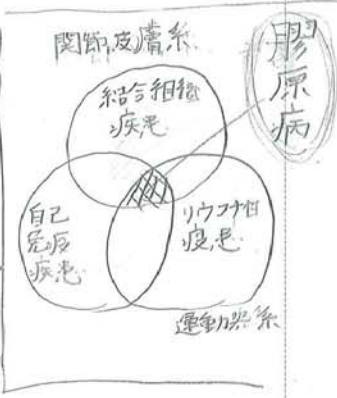 関節、皮膚系
膠原病
結合組織
疾患
自己
免疫
疾患
リウマチ性
疾患
運動器系